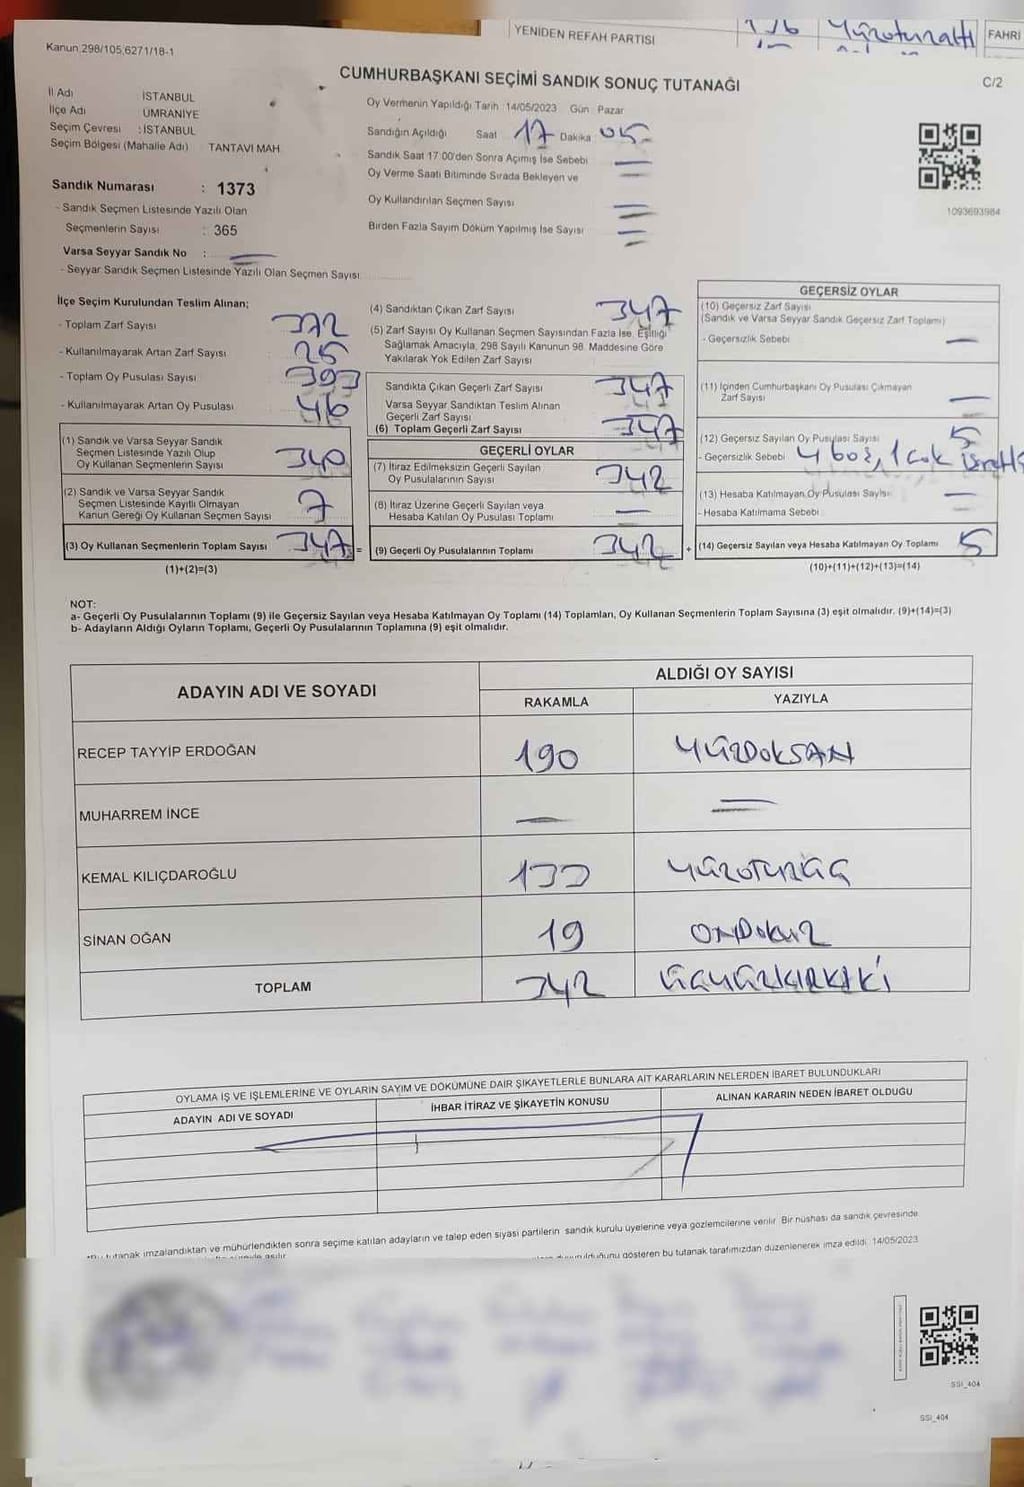 YENİDEN REFAH PARTİSİ
Yüzotuzaltı
FAHRİ
Kanun 298/105,6271/18-1
CUMHURBAŞKANI SEÇİMİ SANDIK SONUÇ TUTANAĞI
C/2
İl Adı İSTANBUL
İlçe Adı ÜMRANİYE
Seçim Çevresi : İSTANBUL
Seçim Bölgesi (Mahalle Adı) TANTAVİ MAH
Sandık Numarası : 1373
- Sandık Seçmen Listesinde Yazılı Olan
Seçmenlerin Sayısı : 365
Varsa Seyyar Sandık No :
- Seyyar Sandık Seçmen Listesinde Yazılı Olan Seçmen Sayısı
Oy Vermenin Yapıldığı Tarih : 14/05/2023 Gün : Pazar
Sandığın Açıldığı Saat 17 Dakika 05
Sandık Saat 17:00'den Sonra Açımış İse Sebebi
Oy Verme Saati Bitiminde Sırada Bekleyen ve
Oy Kullandırılan Seçmen Sayısı
Birden Fazla Sayım Döküm Yapılmış İse Sayısı
1093693984
İlçe Seçim Kurulundan Teslim Alınan;
- Toplam Zarf Sayısı 372
- Kullanılmayarak Artan Zarf Sayısı 25
- Toplam Oy Pusulası Sayısı 393
- Kullanılmayarak Artan Oy Pusulası 46
(1) Sandık ve Varsa Seyyar Sandık
Seçmen Listesinde Yazılı Olup
Oy Kullanan Seçmenlerin Sayısı 340
(2) Sandık ve Varsa Seyyar Sandık
Seçmen Listesinde Kayıtlı Olmayan
Kanun Gereği Oy Kullanan Seçmen Sayısı 7
(3) Oy Kullanan Seçmenlerin Toplam Sayısı 347 =
(1)+(2)=(3)
(4) Sandıktan Çıkan Zarf Sayısı 347
(5) Zarf Sayısı Oy Kullanan Seçmen Sayısından Fazla İse, Eşitliği
Sağlamak Amacıyla, 298 Sayılı Kanunun 98. Maddesine Göre
Yakılarak Yok Edilen Zarf Sayısı
Sandıkta Çıkan Geçerli Zarf Sayısı 347
Varsa Seyyar Sandıktan Teslim Alınan
Geçerli Zarf Sayısı
(6) Toplam Geçerli Zarf Sayısı 347
GEÇERLİ OYLAR
(7) İtiraz Edilmeksizin Geçerli Sayılan
Oy Pusulalarının Sayısı 342
(8) İtiraz Üzerine Geçerli Sayılan veya
Hesaba Katılan Oy Pusulası Toplamı
(9) Geçerli Oy Pusulalarının Toplamı 342 +
GEÇERSİZ OYLAR
(10) Geçersiz Zarf Sayısı
(Sandık ve Varsa Seyyar Sandık Geçersiz Zarf Toplamı)
- Geçersizlik Sebebi
(11) İçinden Cumhurbaşkanı Oy Pusulası Çıkmayan
Zarf Sayısı
(12) Geçersiz Sayılan Oy Pusulası Sayısı 5
- Geçersizlik Sebebi 4 boş, 1 çok işaretli
(13) Hesaba Katılmayan Oy Pusulası Sayısı
- Hesaba Katılmama Sebebi
(14) Geçersiz Sayılan veya Hesaba Katılmayan Oy Toplamı 5
(10)+(11)+(12)+(13)=(14)
NOT:
a- Geçerli Oy Pusulalarının Toplamı (9) ile Geçersiz Sayılan veya Hesaba Katılmayan Oy Toplamı (14) Toplamları, Oy Kullanan Seçmenlerin Toplam Sayısına (3) eşit olmalıdır. (9)+(14)=(3)
b- Adayların Aldığı Oyların Toplamı, Geçerli Oy Pusulalarının Toplamına (9) eşit olmalıdır.
ADAYIN ADI VE SOYADI
ALDIĞI OY SAYISI
RAKAMLA YAZIYLA
RECEP TAYYİP ERDOĞAN 190 YÜZDOKSAN
MUHARREM İNCE
KEMAL KILIÇDAROĞLU 133 YÜZOTUZÜÇ
SİNAN OĞAN 19 ONDOKUZ
TOPLAM 342 ÜÇYÜZKIRKİKİ
OYLAMA İŞ VE İŞLEMLERİNE VE OYLARIN SAYIM VE DÖKÜMÜNE DAİR ŞİKAYETLERLE BUNLARA AİT KARARLARIN NELERDEN İBARET BULUNDUKLARI
ADAYIN ADI VE SOYADI İHBAR İTİRAZ VE ŞİKAYETİN KONUSU ALINAN KARARIN NEDEN İBARET OLDUĞU
*Bu tutanak imzalandıktan ve mühürlendikten sonra seçime katılan adayların ve talep eden siyasi partilerin sandık kurulu üyelerine veya gözlemcilerine verilir. Bir nüshası da sandık çevresinde
gösteren bu tutanak tarafımızdan düzenlenerek imza edildi. 14/05/2023
SSI_404
SSI_404